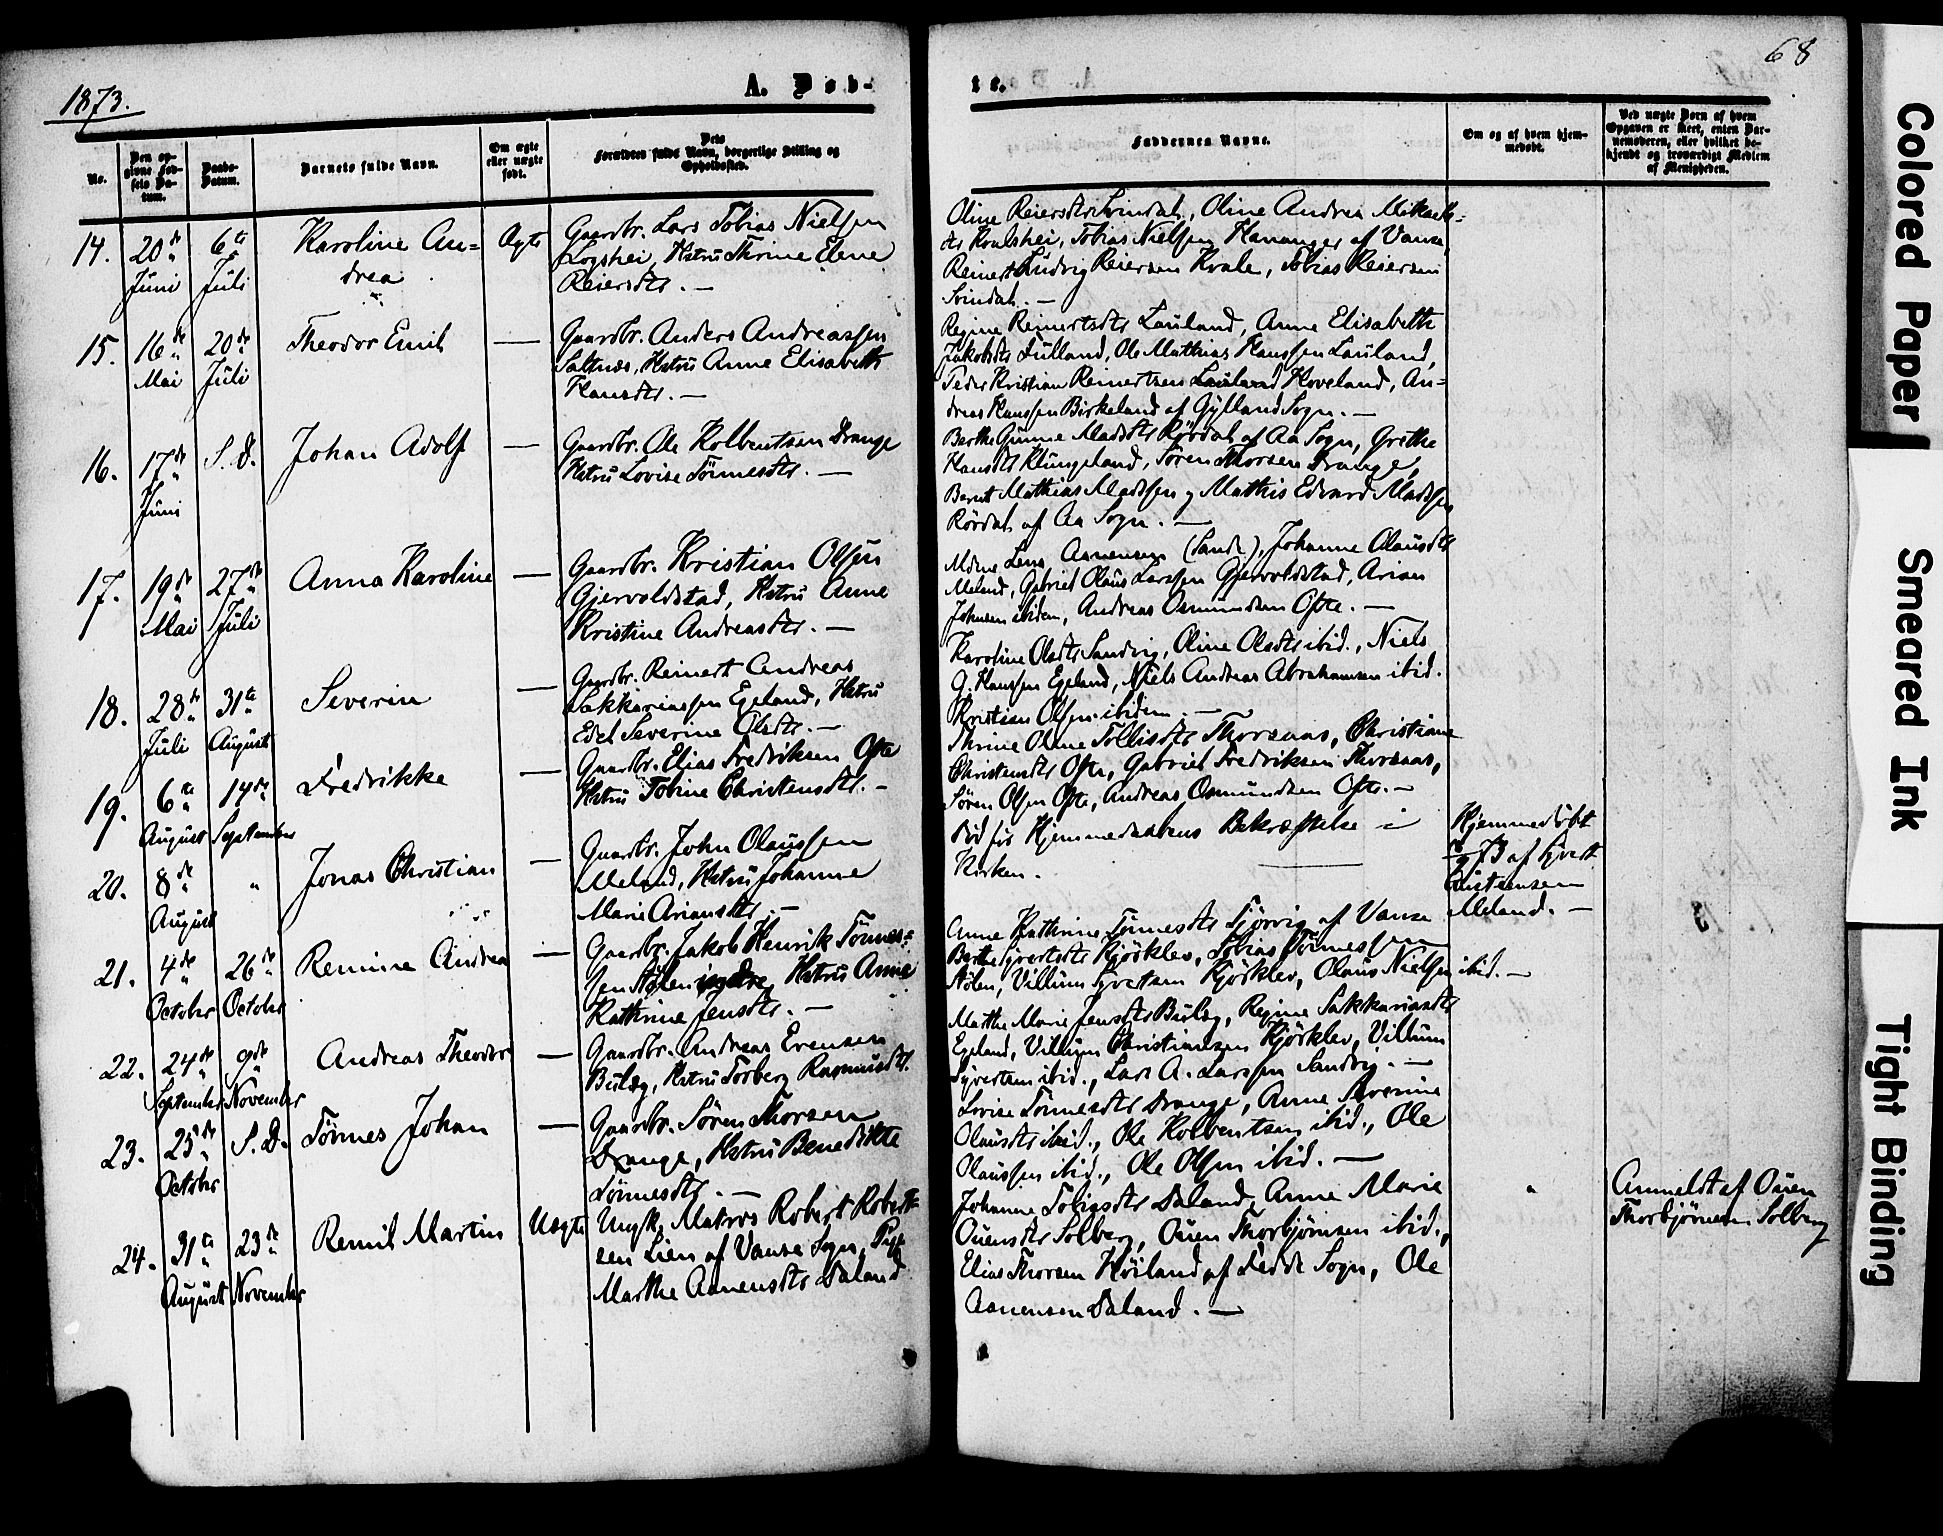 1873.
A. Døb-
te.
68
No.
Den op-
givne Fød-
sels Da-
tum.
Daabs-
Datum.
Barnets fulde Navn.
Om ægte
eller uægte
født.
Dets
Forældres fulde Navn, borgerlige Stilling og
Opholdssted.
Faddernes Navne.
Om og af hvem hjem-
medøbt.
Ved uægte Børn af hvem
Opgaven er skeet, enten Bar-
nemoderen, eller hvilket be-
kjendt og troværdigt Medlem
af Menigheden.
14. 20de Juni
6te Juli
Karoline An-
drea
Ægte
Gaardbr. Lars Tobias Nielsen
Logshei, Hstru Thrine Elene
Reiersdtr. —
Oline Reiersdtr Svindal, Oline Andrea Mikaels-
dtr Kvalshei, Tobias Nielsen Hananger af Vanse,
Reinert Ludvig Reiersen Kvale, Tobias Reiersen
Svindal. —
15. 16de Mai
20de Juli
Theodor Emil
—
Gaardbr. Anders Andreassen
Saltnæs, Hstru Anne Elisabeth
Hansdtr. —
Regine Reinertsdtr Lauland, Anne Elisabeth
Jakobsdtr Lulland, Ole Mathias Hanssen Lauland,
Peder Kristian Reinertsen Hoveland, An-
dreas Hanssen Birkeland af Gylland Sogn. —
16. 17de Juni
S. D.
Johan Adolf
—
Gaardbr. Ole Kolbentsen Drange
Hstru Lovise Tönnesdtr. —
Berthe Gunne Madsdtr Rördal af Aa Sogn, Grethe
Hansdtr Klungeland, Sören Thorsen Drange,
Bernt Mathias Madssen og Mathis Edvard Madssen
Rördal af Aa Sogn. —
17. 19de Mai
27de Juli
Anna Karoline
—
Gaardbr. Kristian Olsen
Gjervoldstad, Hstru Anne
Kristine Andreasdtr. —
Mdme Lena Aanensen (Sande), Johanne Olausdtr
Meland, Gabriel Olaus Larssen Gjervoldstad, Arian
Johnsen ibidem, Andreas Osmundsen Ofte. —
18. 28de Juli
31te August
Severin
—
Gaardbr. Reinert Andreas
Sakkariassen Egeland, Hstru
Edel Severine Olsdtr. —
Karoline Olsdtr Sandvig, Oline Olsdtr ibid., Niels
G. Hanssen Egeland, Niels Andreas Abrahamsen ibid.
Kristian Olsen ibidem. —
19. 6te August
14de September
Fredrikke
—
Gaardbr. Elias Fredriksen Ofte
Hstru Tobine Christensdtr. —
Thrine Oline Tollisdtr Thorsnæs, Christiane
Christensdtr Ofte, Gabriel Fredriksen Thorsnæs,
Sören Olsen Ofte, Andreas Osmundsen Ofte. —
20. 8de August
"
Jonas Christian
—
Gaardbr. John Olaussen
Meland, Hstru Johanne
Marie Ariansdtr. —
Död för Hjemmedaabens Bekræftelse i
Kirken.
Hjemmedöbt
af Syvert
Meland. —
21. 4de Octobr
26de Octobr
Remine Andrea
—
Gaardbr. Jakob Henrik Tönnes-
sen Stölen indre, Hstru Anne
Kathrine Jensdtr. —
Anne Kathrine Tönnesdtr Tjörvig af Vanse
Berthe Syvertsdtr Kjörklev, Tobias Tönnessen
Stölen, Villum Syvertsen Kjörklev, Olaus Nielsen ibid. —
22. 24de September
9de November
Andreas Theodor
—
Gaardbr. Andreas Evensen
Buleg, Hstru Torberg Rasmusdtr.
Marthe Marie Jensdtr Buleg, Regine Sakkariasdtr
Egeland, Villum Christiansen Kjörklev, Villum
Syvertsen ibid., Lars A. Larssen Sandvig. —
23. 25de Octobr
S. D.
Tönnes Johan
—
Gaardbr. Sören Thorsen
Drange, Hstru Benedikte
Tönnesdtr. —
Lovise Tönnesdtr Drange, Anne Severine
Olausdtr ibid., Ole Kolbentsen ibid., Ole
Olaussen ibid., Ole Olsen ibid. —
24. 31te August
23de November
Remil Martin
Uægte
Ungk. Matros Robert Robert-
sen Lien af Vanse Sogn, Pige
Marthe Aanensdtr Daland
Johanne Tobiasdtr Daland, Anne Marie
Ouensdtr Solberg, Ouen Thorbjörnsen ibid.,
Elias Thorsen Höiland af Fedde Sogn, Ole
Aanensen Daland. —
"
Anmeldt af Ouen
Thorbjörnsen Solberg
Colored Paper
Smeared Ink
Tight Binding